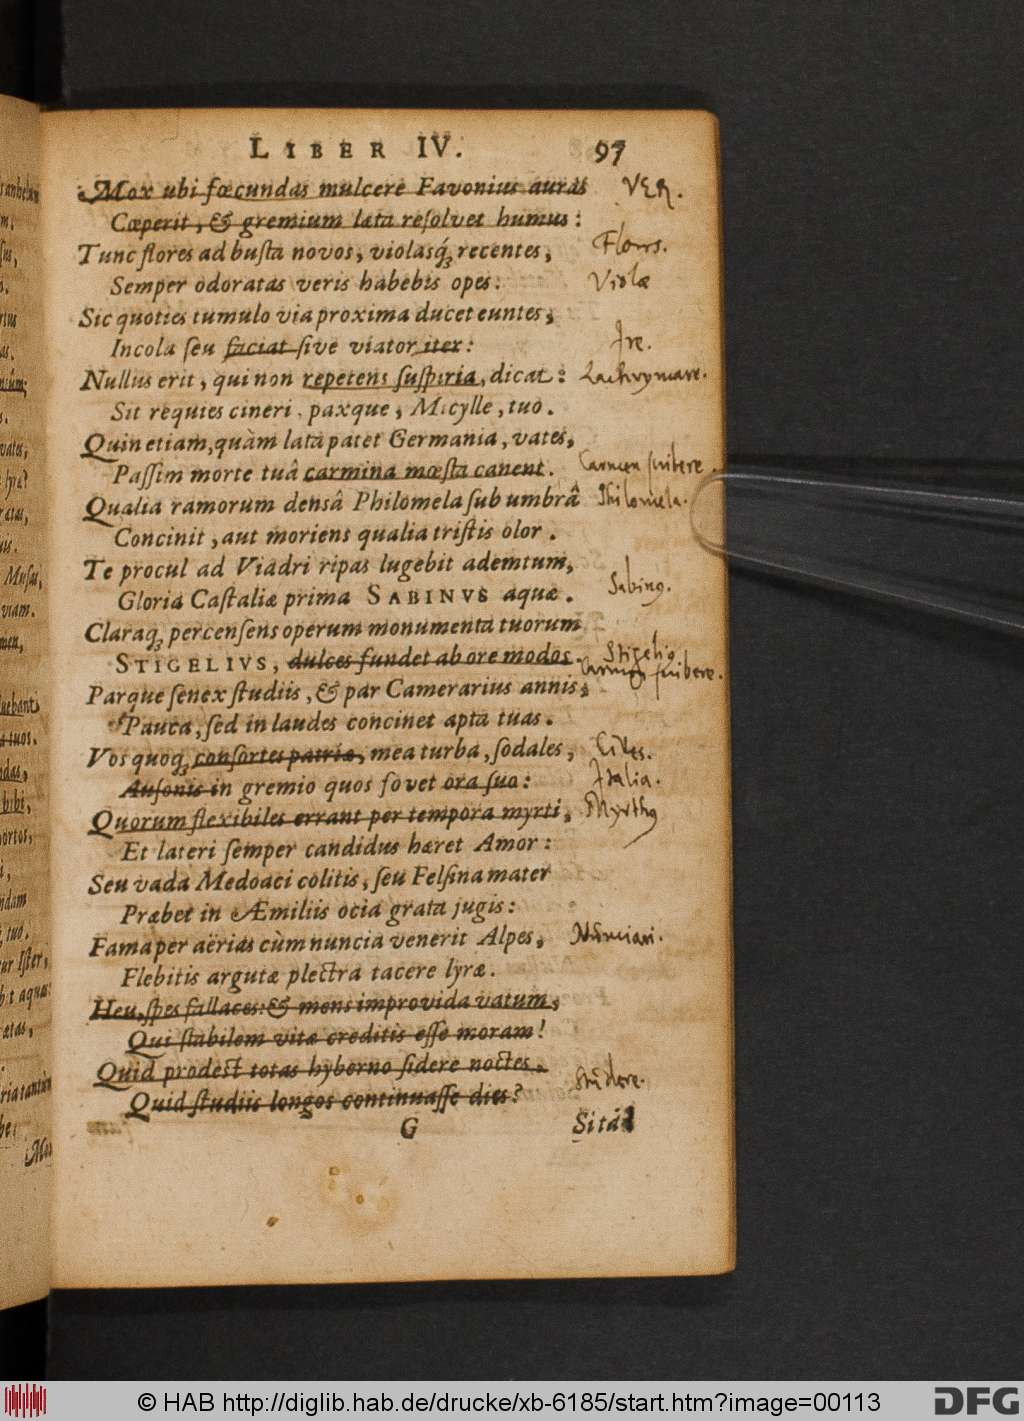 LIBER IV. 97
Mox ubi fœcundas mulcere Favonius auras VER.
Cœperit, & gremium lata reſolvet humus:
Tunc flores ad buſta novos, violasq́; recentes, Flores.
Semper odoratas veris habebis opes: Violæ
Sic quoties tumulo via proxima ducet euntes,
Incola ſeu faciat ſive viator iter: Ire.
Nullus erit, qui non repetens ſuſpiria, dicat: Lachrymare.
Sit requies cineri, paxque, Micylle, tuo.
Quin etiam, quàm latà patet Germania, vates,
Paſſim morte tuâ carmina mœſta canent. Carmen ſcribere.
Qualia ramorum densâ Philomela ſub umbrâ Philomela.
Concinit, aut moriens qualia triſtis olor.
Te procul ad Viadri ripas lugebit ademtum,
Gloria Caſtaliæ prima SABINVS aquæ. Sabinus.
Claraq́; percenſens operum monumenta tuorum
STIGELIVS, dulces fundet ab ore modos. Stigeli9 Carmen ſcribere.
Parque ſenex ſtudiis, & par Camerarius annis,
Pauca, ſed in laudes concinet apta tuas.
Vos quoq́; conſortes patriæ, mea turba, ſodales, Cives.
Auſonis in gremio quos fovet ora ſuo: Italia.
Quorum flexibiles errant per tempora myrti, Myrthus
Et lateri ſemper candidus hæret Amor:
Seu vada Medoaci colitis, ſeu Felſina mater
Præbet in Æmiliis ocia grata jugis:
Fama per aërias cùm nuncia venerit Alpes, Nunciari.
Flebitis argutæ plectra tacere lyræ.
Heu, ſpes fallaces: & mens improvida vatum,
Qui ſtabilem vitæ creditis eſſe moram!
Quid prodeſt totas hyberno ſidere noctes,
Quid ſtudiis longos continuaſſe dies? Studere.
G Sita
© HAB http://diglib.hab.de/drucke/xb-6185/start.htm?image=00113 DFG